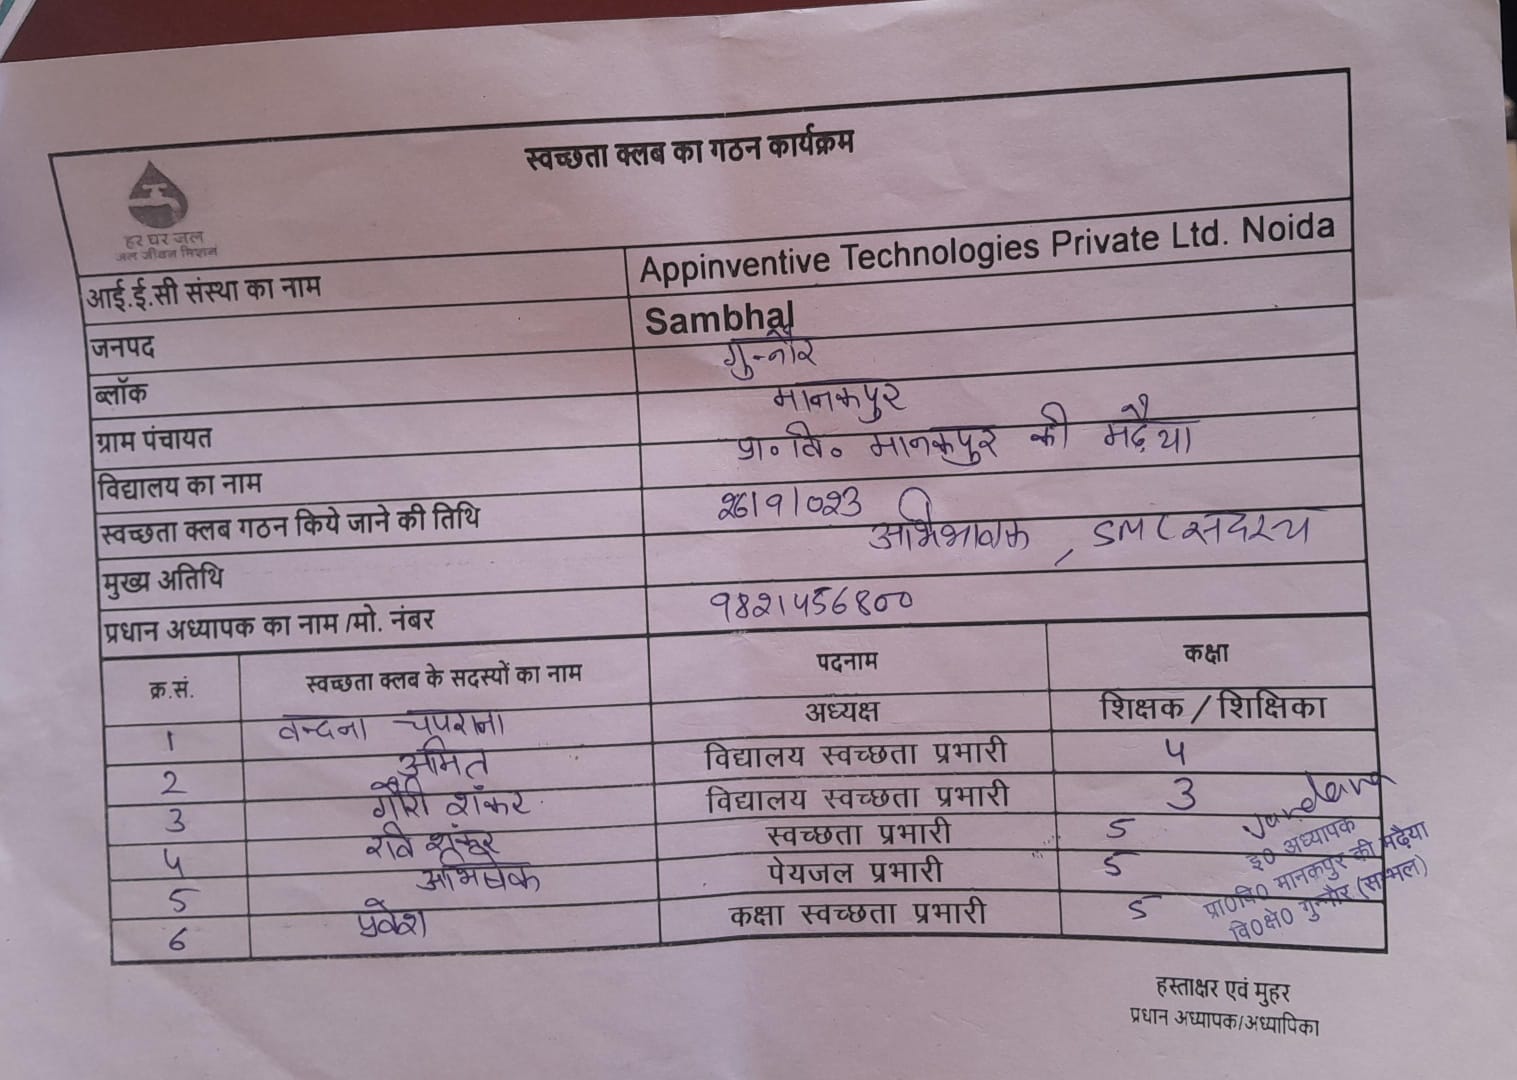 स्वच्छता क्लब का गठन कार्यक्रम
हर घर जल
जल जीवन मिशन
आई.ई.सी संस्था का नाम Appinventive Technologies Private Ltd. Noida
जनपद Sambhal
ब्लॉक गुन्नौर
ग्राम पंचायत मानकपुर
विद्यालय का नाम प्रा० वि० मानकपुर की मढ़ैया
स्वच्छता क्लब गठन किये जाने की तिथि 26/9/023
मुख्य अतिथि अभिभावक, SMC सदस्य
प्रधान अध्यापक का नाम /मो. नंबर 9821456800
क्र.सं. स्वच्छता क्लब के सदस्यों का नाम पदनाम कक्षा
1 वन्दना चपराना अध्यक्ष शिक्षक / शिक्षिका
2 अमित विद्यालय स्वच्छता प्रभारी 4
3 गौरी शंकर विद्यालय स्वच्छता प्रभारी 3
4 रवि शंकर स्वच्छता प्रभारी 5
5 अभिषेक पेयजल प्रभारी 5
6 प्रवेश कक्षा स्वच्छता प्रभारी 5
Vandana
इ0 अध्यापक
प्रा0वि0 मानकपुर की मढ़ैया
वि0क्षे0 गुन्नौर (सम्भल)
हस्ताक्षर एवं मुहर
प्रधान अध्यापक/अध्यापिका